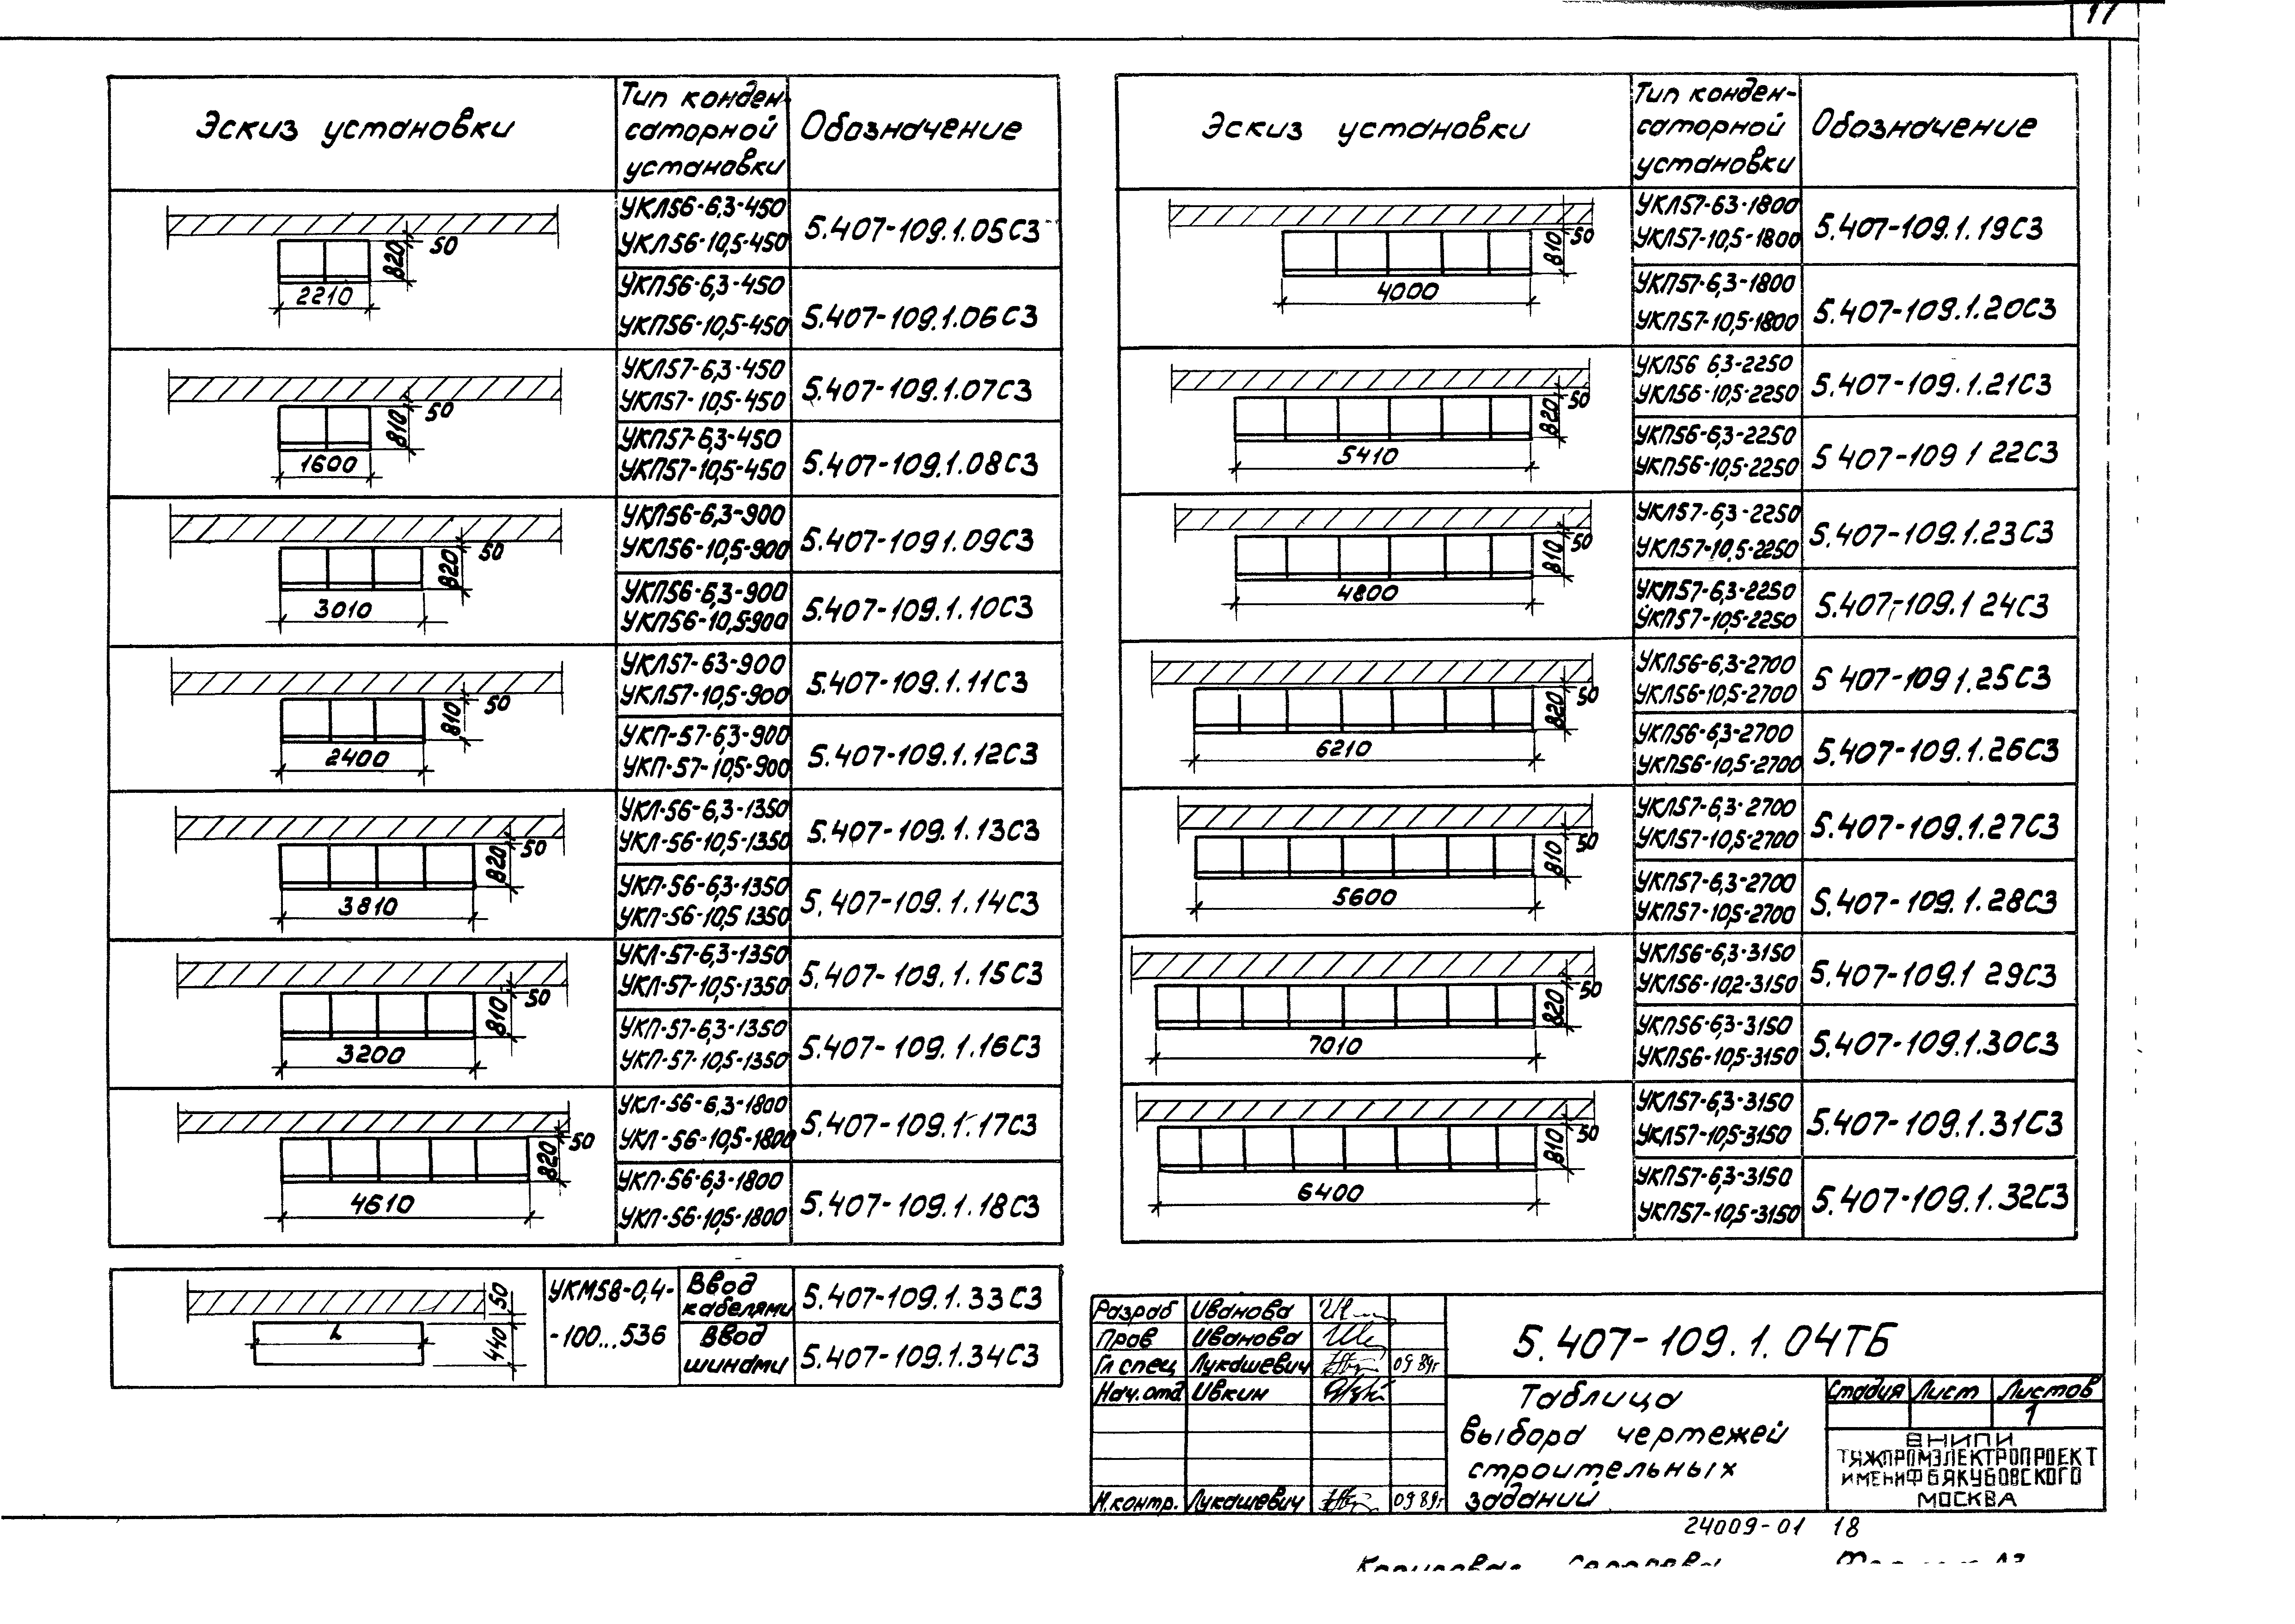 17
Эскиз установки
Тип конден-
саторной
установки
Обозначение
УКЛ56-6,3-450
УКЛ56-10,5-450
5.407-109.1.05СЗ
50
820
2210
УКП56-6,3-450
УКП56-10,5-450
5.407-109.1.06СЗ
УКЛ57-6,3-450
УКЛ57-10,5-450
5.407-109.1.07СЗ
50
810
1600
УКП57-6,3-450
УКП57-10,5-450
5.407-109.1.08СЗ
УКЛ56-6,3-900
УКЛ56-10,5-900
5.407-109 1.09СЗ
50
820
3010
УКП56-6,3-900
УКП56-10,5-900
5.407-109.1.10СЗ
УКЛ57-63-900
УКЛ57-10,5-900
5.407-109.1.11СЗ
50
810
2400
УКП-57-6,3-900
УКП-57-10,5-900
5.407-109.1.12СЗ
УКЛ-56-6,3-1350
УКЛ-56-10,5-1350
5.407-109.1.13СЗ
50
820
3810
УКП-56-6,3-1350
УКП-56-10,5 1350
5.407-109.1.14СЗ
УКЛ-57-6,3-1350
УКЛ-57-10,5-1350
5.407-109.1.15СЗ
50
810
3200
УКП-57-6,3-1350
УКП-57-10,5-1350
5.407-109.1.16СЗ
УКЛ-56-6,3-1800
УКЛ-56-10,5-1800
5.407-109.1.17СЗ
50
820
4610
УКП-56-6,3-1800
УКП-56-10,5-1800
5.407-109.1.18СЗ
50
440
L
УКМ58-0,4-
-100...536
Ввод
кабелями
5.407-109.1.33СЗ
Ввод
шинами
5.407-109.1.34СЗ
Эскиз установки
Тип конден-
саторной
установки
Обозначение
УКЛ57-63-1800
УКЛ57-10,5-1800
5.407-109.1.19СЗ
50
810
4000
УКП57-6,3-1800
УКП57-10,5-1800
5.407-109.1.20СЗ
УКЛ56 6,3-2250
УКЛ56-10,5-2250
5.407-109.1.21СЗ
50
820
5410
УКП56-6,3-2250
УКП56-10,5-2250
5 407-109 1 22СЗ
УКЛ57-6,3-2250
УКЛ57-10,5-2250
5.407-109.1.23СЗ
50
810
4800
УКП57-6,3-2250
УКП57-10,5-2250
5.407-109.1 24СЗ
УКЛ56-6,3-2700
УКЛ56-10,5-2700
5 407-109 1.25СЗ
50
820
6210
УКП56-6,3-2700
УКП56-10,5-2700
5.407-109.1.26СЗ
УКЛ57-6,3-2700
УКЛ57-10,5-2700
5.407-109.1.27СЗ
50
810
5600
УКП57-6,3-2700
УКП57-10,5-2700
5.407-109.1.28СЗ
УКЛ56-6,3-3150
УКЛ56-10,2-3150
5.407-109.1 29СЗ
50
820
7010
УКП56-6,3-3150
УКП56-10,5-3150
5.407-109.1.30СЗ
УКЛ57-6,3-3150
УКЛ57-10,5-3150
5.407-109.1.31СЗ
50
810
6400
УКП57-6,3-3150
УКП57-10,5-3150
5.407-109.1.32СЗ
Разраб Иванова
Пров Иванова
Гл спец Лукашевич 09 89г
Нач.отд Ивкин
Н.контр. Лукашевич 09 89г
5.407-109.1.04ТБ
Таблица
выбора чертежей
строительных
заданий
Стадия Лист Листов
1
ВНИПИ
ТЯЖПРОМЭЛЕКТРОПРОЕКТ
ИМЕНИ Ф Б ЯКУБОВСКОГО
МОСКВА
24009-01 18